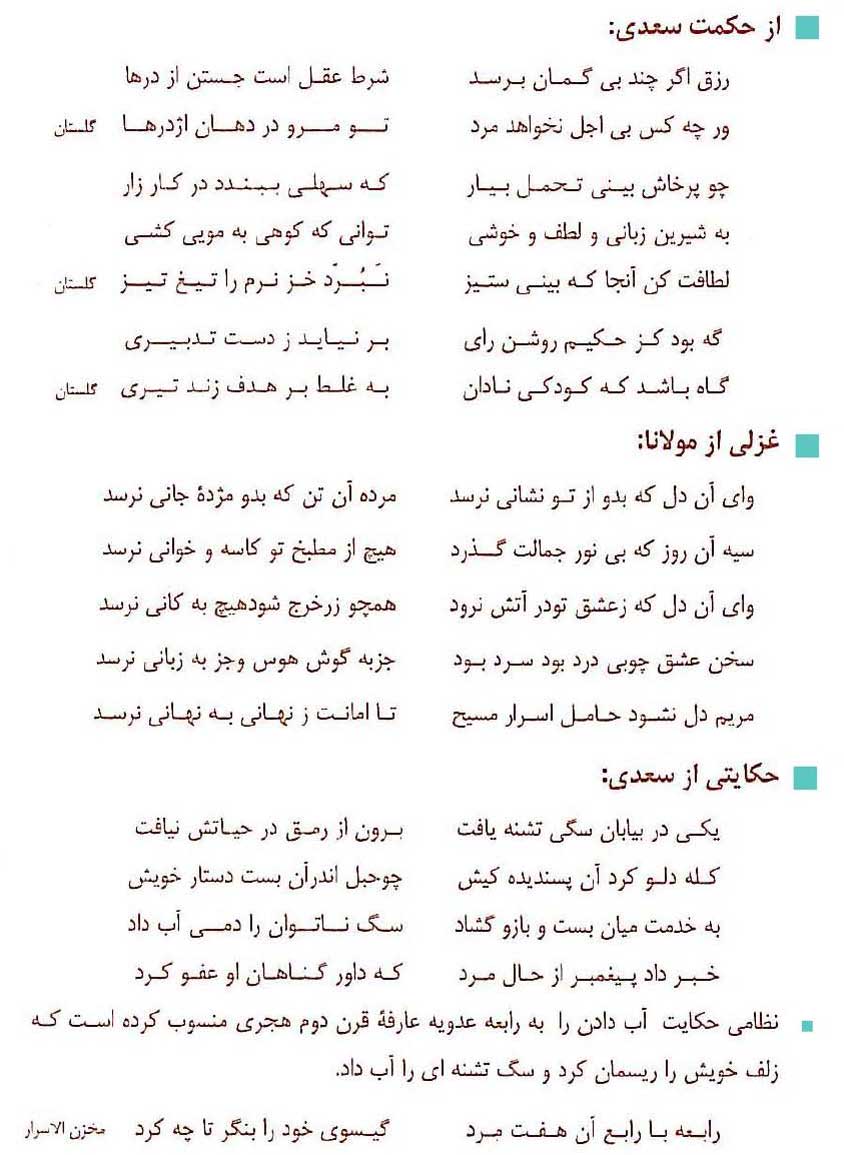 از حکمت سعدی:
رزق اگر چند بی گمان برسد شرط عقل است جستن از درها
ور چه کس بی اجل نخواهد مرد تو مرو در دهان اژدرها گلستان
چو پرخاش بینی تحمل بیار که سهلی ببندد در کار زار
به شیرین زبانی و لطف و خوشی توانی که کوهی به مویی کشی
لطافت کن آنجا که بینی ستیز نَبُرَّد خز نرم را تیغ تیز گلستان
گه بود کز حکیم روشن رای بر نیاید ز دست تدبیری
گاه باشد که کودکی نادان به غلط بر هدف زند تیری گلستان
غزلی از مولانا:
وای آن دل که بدو از تو نشانی نرسد مرده آن تن که بدو مژدهٔ جانی نرسد
سیه آن روز که بی نور جمالت گذرد هیچ از مطبخ تو کاسه و خوانی نرسد
وای آن دل که زعشق تودر آتش نرود همچو زرخرج شودهیچ به کانی نرسد
سخن عشق چوبی درد بود سرد بود جزبه گوش هوس وجز به زبانی نرسد
مریم دل نشود حامل اسرار مسیح تا امانت ز نهانی به نهانی نرسد
حکایتی از سعدی:
یکی در بیابان سگی تشنه یافت برون از رمق در حیاتش نیافت
کله دلو کرد آن پسندیده کیش چوحبل اندرآن بست دستار خویش
به خدمت میان بست و بازو گشاد سگ ناتوان را دمی آب داد
خبر داد پیغمبر از حال مرد که داور گناهان او عفو کرد
نظامی حکایت آب دادن را به رابعه عدویه عارفهٔ قرن دوم هجری منسوب کرده است که
زلف خویش را ریسمان کرد و سگ تشنه ای را آب داد.
رابعه با رابع آن هفت مرد گیسوی خود را بنگر تا چه کرد مخزن الاسرار